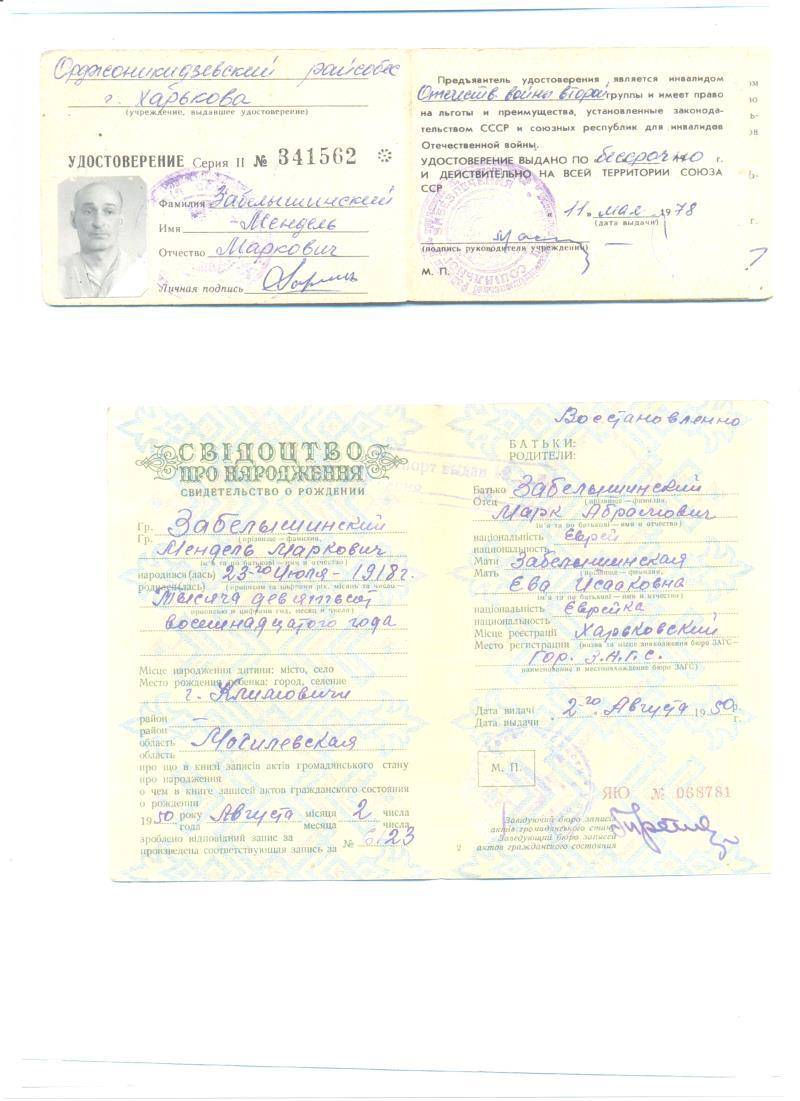 Орджоникидзевский райсобес
г. Харькова
(учреждение, выдавшее удостоверение)
УДОСТОВЕРЕНИЕ Серия II № 341562
Фамилия Забелышинский
Имя Мендель
Отчество Маркович
Личная подпись
Предъявитель удостоверения является инвалидом
Отечеств войны второй группы и имеет право
на льготы и преимущества, установленные законода-
тельством СССР и союзных республик для инвалидов
Отечественной войны.
УДОСТОВЕРЕНИЕ ВЫДАНО ПО бессрочно г.
И ДЕЙСТВИТЕЛЬНО НА ВСЕЙ ТЕРРИТОРИИ СОЮЗА
ССР
„ 11 „ мая 1978 г.
(дата выдачи)
(подпись руководителя учреждения)
М. П.
СВІДОЦТВО
ПРО НАРОДЖЕННЯ
СВИДЕТЕЛЬСТВО О РОЖДЕНИИ
Гр. Забелышинский
Гр. (прізвище—фамилия,
Мендель Маркович
ім'я та по батькові—имя и отчество)
народився(лась) 23-го Июля - 1918 г.
родился(лась) (прописом та цифрами рік, місяць та число—
Тысяча девятьсот
прописью и цифрами год, месяц и число)
восемнадцатого года
Місце народження дитини: місто, село
Место рождения ребенка: город, селение
г. Климовичи
район
район
область Могилевская
область
про що в книзі записів актів громадянського стану
про народження
о чем в книге записей актов гражданского состояния
о рождении
1950 року Августа місяця 2 числа
года месяца числа
зроблено відповідний запис за
произведена соответствующая запись за № 623
Восстановленно
БАТЬКИ:
РОДИТЕЛИ:
Батько Забелышинский
Отец (прізвище—фамилия,
Марк Абрамович
ім'я та по батькові—имя и отчество)
національність Еврей
национальность
Мати Забелышинская
Мать (прізвище—фамилия,
Ева Исааковна
ім'я та по батькові—имя и отчество)
національність Еврейка
национальность
Місце реєстрації Харьковский
Место регистрации (назва та місце знаходження бюро ЗАГС—
Гор. З.А.Г.С.
наименование и местонахождение бюро ЗАГС)
Дата видачі „ 2-го „ Августа 1950 р.
Дата выдачи г.
М. П.
ЯЮ № 068781
Завідуючий бюро записів
актів громадянського стану
Заведующий бюро записей
актов гражданского состояния
2